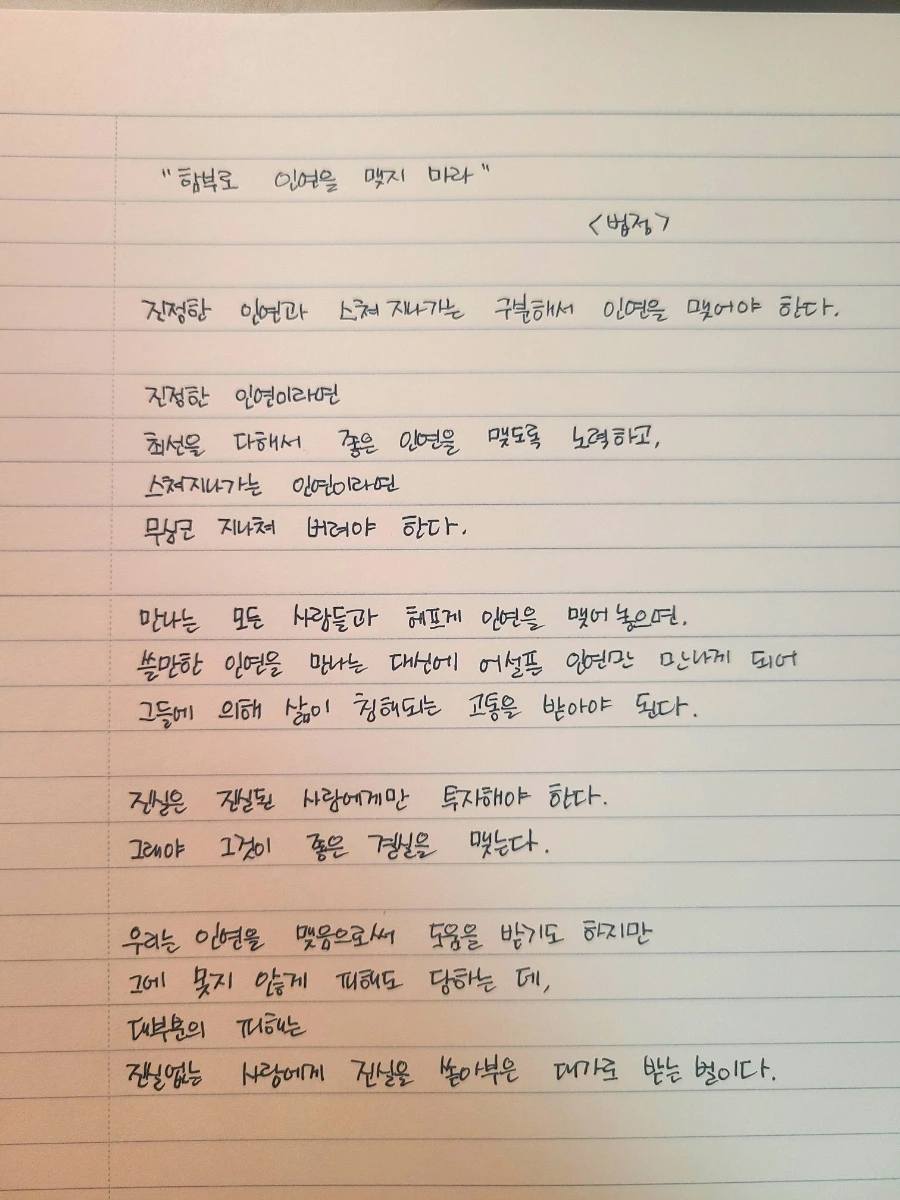 "함부로 인연을 맺지 마라"
<법정>
진정한 인연과 스쳐 지나가는 구분해서 인연을 맺어야 한다.
진정한 인연이라면
최선을 다해서 좋은 인연을 맺도록 노력하고,
스쳐지나가는 인연이라면
무심코 지나쳐 버려야 한다.
만나는 모든 사람들과 헤프게 인연을 맺어 놓으면.
쓸만한 인연을 만나는 대신에 어설픈 인연만 만나게 되어
그들에 의해 삶이 침해되는 고통을 받아야 된다.
진실은 진실된 사람에게만 투자해야 한다.
그래야 그것이 좋은 결실을 맺는다.
우리는 인연을 맺음으로써 도움을 받기도 하지만
그에 못지 않게 피해도 당하는 데,
대부분의 피해는
진실없는 사람에게 진실을 쏟아부은 대가로 받는 벌이다.